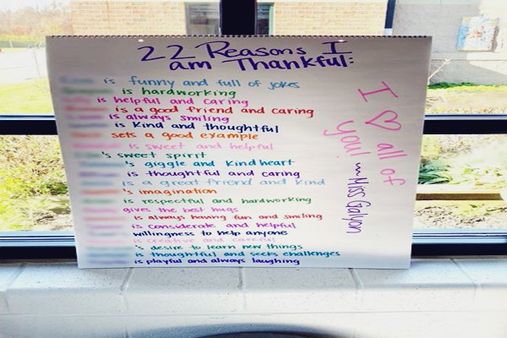 22 Reasons I
am Thankful:
is funny and full of jokes
is hardworking
is helpful and caring
is a good friend and caring
is always smiling
is kind and thoughtful
sets a good example
is sweet and helpful
's sweet spirit
's giggle and kind heart
is thoughtful and caring
is a great friend and kind
's imagination
is respectful and hardworking
gives the best hugs
is always having fun and smiling
is considerate and helpful
willingness to help anyone
is creative and careful
's desire to learn new things
is thoughtful and seeks challenges
is playful and always laughing
I ♡ all of
you!
~Miss Galyon